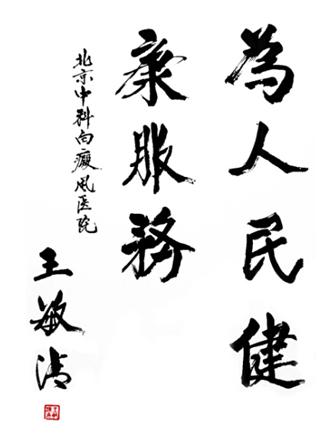 為人民健
康服務
北京中科白癜风医院
王敏清